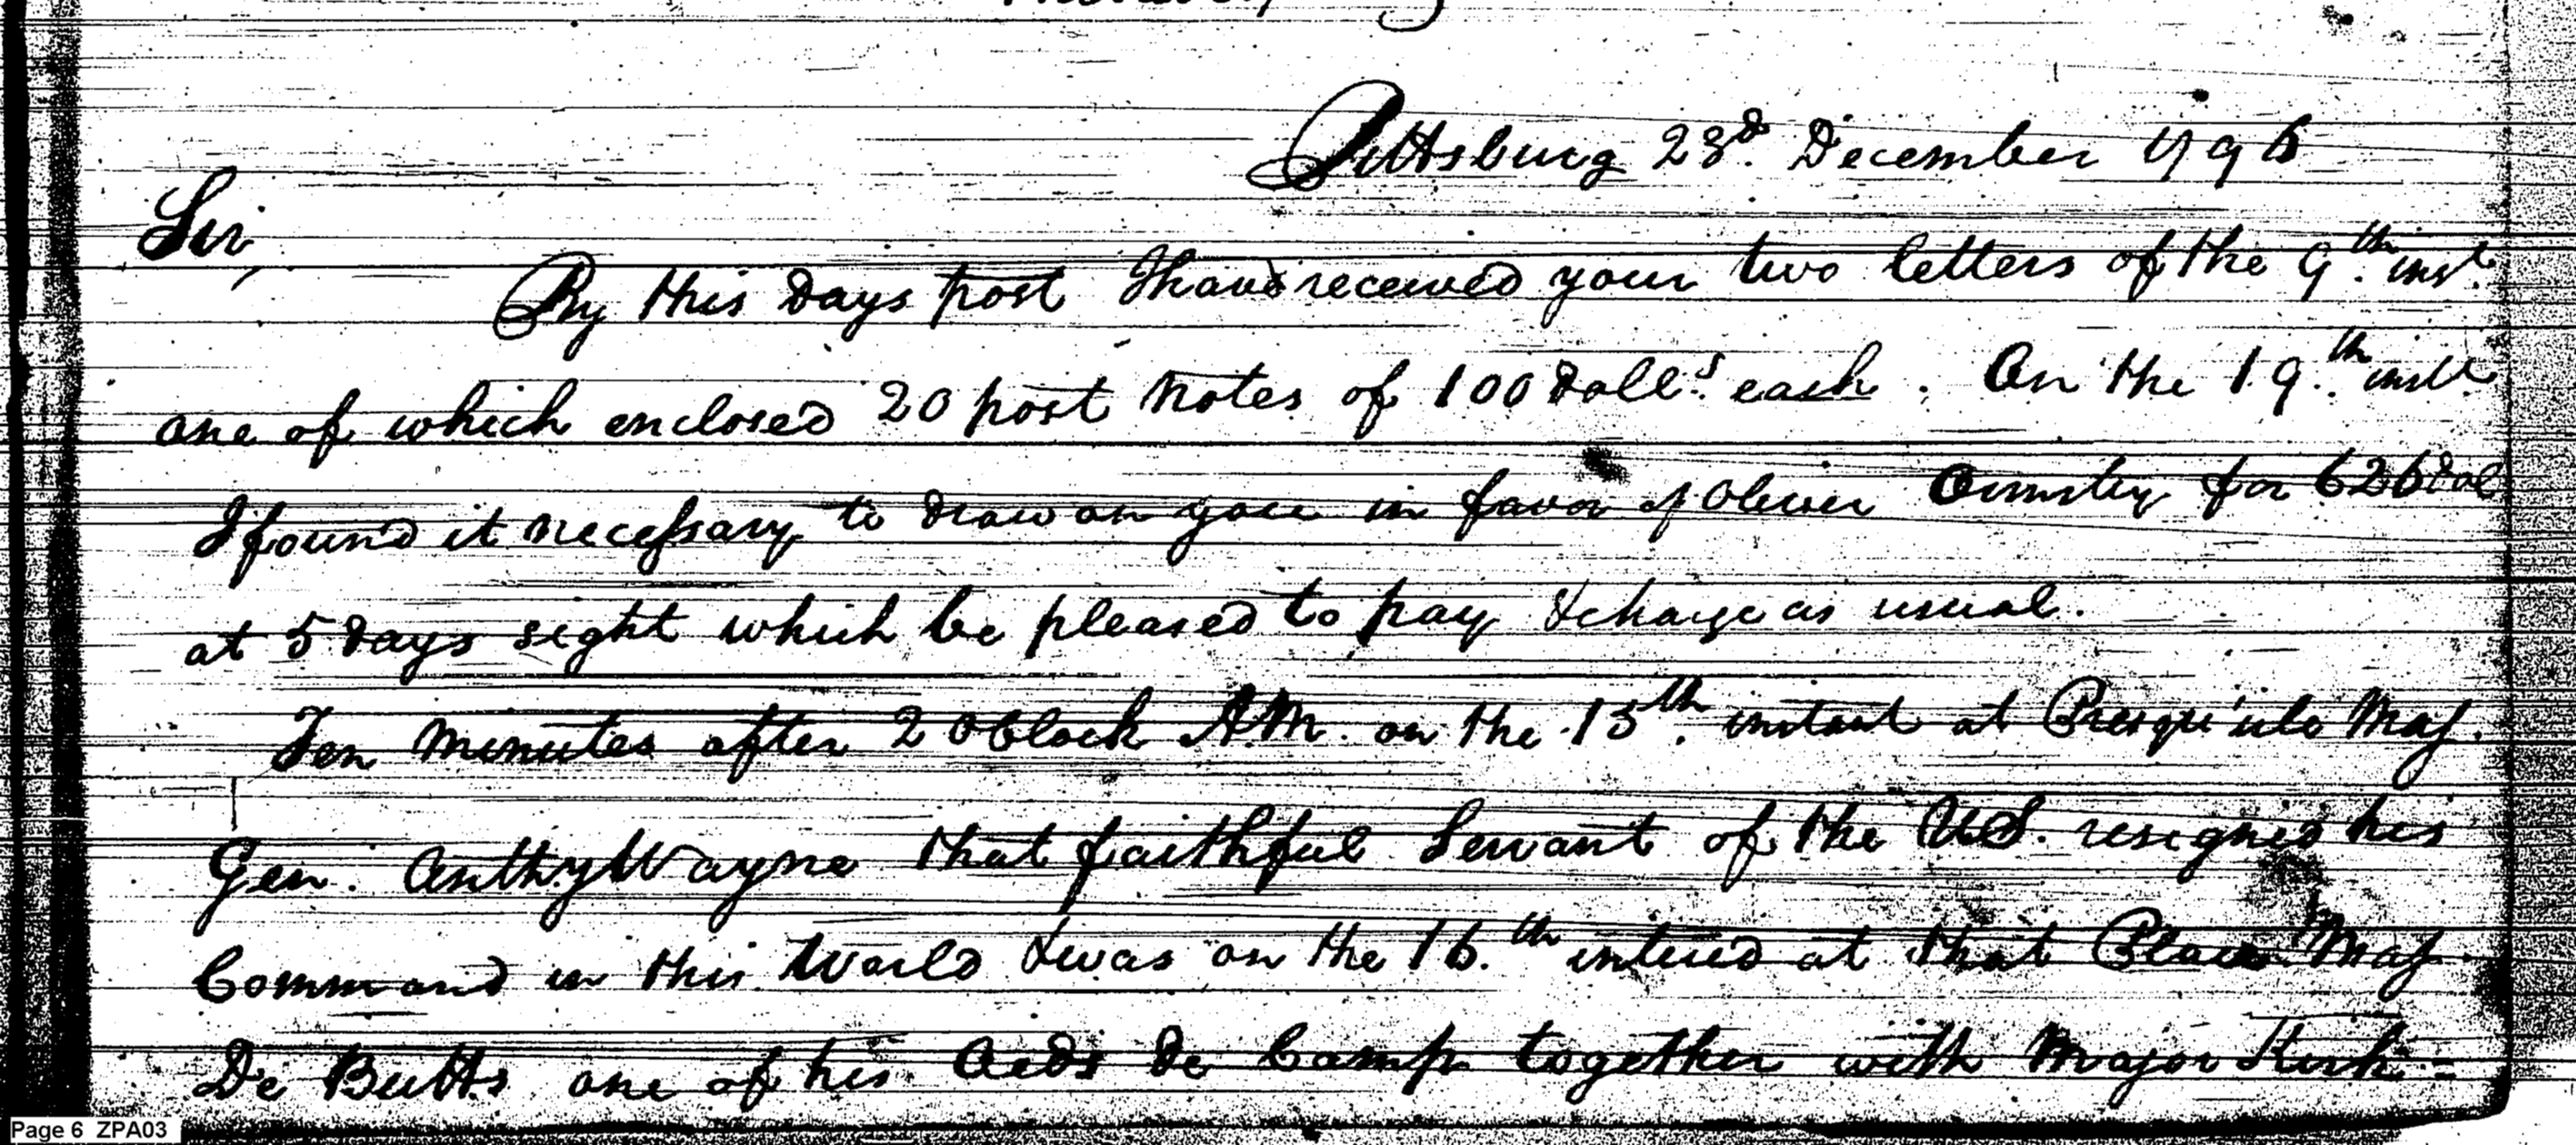 Pittsburg 23d. December 1796
Sir,
By this Days post I have received your two letters of the 9.th inst.
one of which enclosed 20 post Notes of 100 Dolls. each. On the 19.th inst.
I found it necessary to draw on you in favor of Oliver Ormsby for 626 Dol
at 5 Days sight which be pleased to pay & charge as usual.
Ten Minutes after 2 OClock A.M. on the 15th. instant at Presqu'isle Maj.
Gen. Anthy Wayne that faithful Servant of the U.S. resigned his
Command in this World & was on the 16.th intered at that Place Maj.
De Butts one of his Aeds De Camp together with Major Kirk-
Page 6 ZPA03